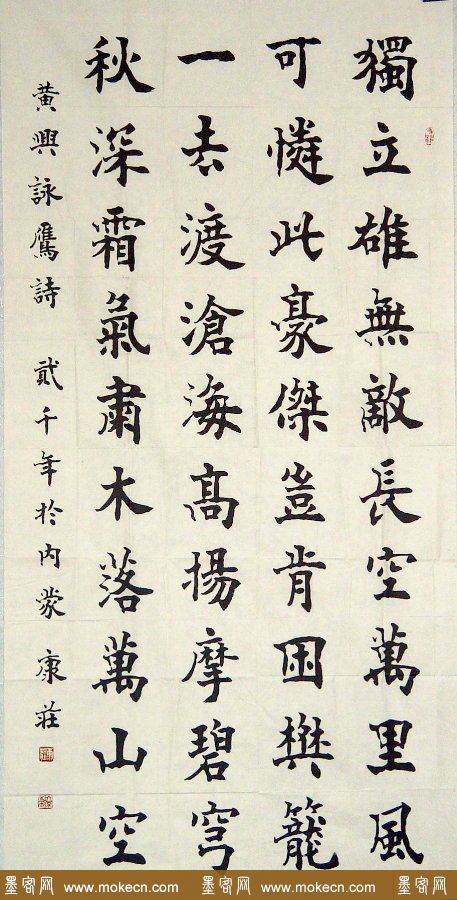 獨立雄無敵長空萬里風
可憐此豪傑豈肯困樊籠
一去渡滄海高揚摩碧穹
秋深霜氣肅木落萬山空
黃興詠鷹詩 貳千年於內蒙 康莊
墨客网 www.mokecn.com 墨客网 www.mokecn.com